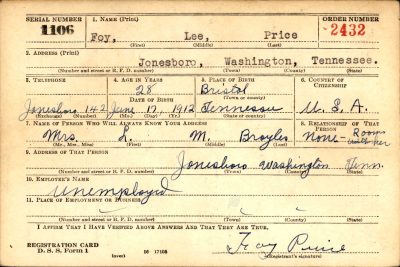 SERIAL NUMBER 1. NAME (Print) ORDER NUMBER
1106 Foy, Lee, Price 2432
(First) (Middle) (Last)
2. ADDRESS (Print)
Jonesboro, Washington, Tennessee.
(Number and street or R. F. D. number) (Town) (County) (State)
3. TELEPHONE 4. AGE IN YEARS 5. PLACE OF BIRTH 6. COUNTRY OF CITIZENSHIP
28 Bristol
DATE OF BIRTH (Town or county)
Jonesboro 142 June 17, 1912 Tennessee U.S.A.
(Exchange) (Number) (Mo.) (Day) (Yr.) (State or country)
7. NAME OF PERSON WHO WILL ALWAYS KNOW YOUR ADDRESS 8. RELATIONSHIP OF THAT PERSON
Mrs. L. M. Broyles None - Room with her
(Mr., Mrs., Miss) (First) (Middle) (Last)
9. ADDRESS OF THAT PERSON
Jonesboro Washington Tenn.
(Number and street or R. F. D. number) (Town) (County) (State)
10. EMPLOYER'S NAME
Unemployed
11. PLACE OF EMPLOYMENT OR BUSINESS
(Number and street or R. F. D. number) (Town) (County) (State)
I AFFIRM THAT I HAVE VERIFIED ABOVE ANSWERS AND THAT THEY ARE TRUE.
REGISTRATION CARD
D. S. S. Form 1 (over) Foy Price
(Registrant's signature)